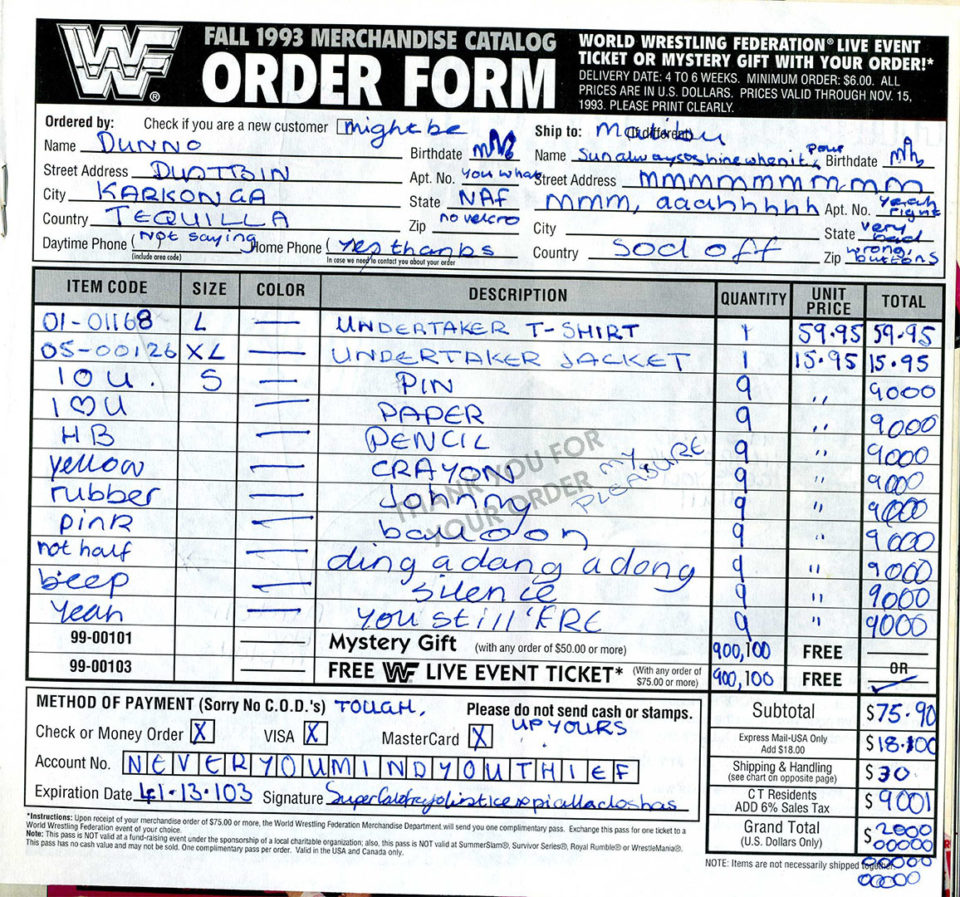 WF
FALL 1993 MERCHANDISE CATALOG
ORDER FORM
WORLD WRESTLING FEDERATION® LIVE EVENT
TICKET OR MYSTERY GIFT WITH YOUR ORDER!*
DELIVERY DATE: 4 TO 6 WEEKS. MINIMUM ORDER: $6.00. ALL
PRICES ARE IN U.S. DOLLARS. PRICES VALID THROUGH NOV. 15,
1993. PLEASE PRINT CLEARLY.
Ordered by: Check if you are a new customer might be
Ship to: (If different) malibu
Name DUNNO Birthdate
Name sun always shine when it pour Birthdate
Street Address DUSTBIN Apt. No. you what
Street Address mmmmmmmm.mm
City KARKONGA State NAF
mmm, aaahhhhh Apt. No. yeah right
Country TEQUILLA Zip no velcro
City State very bad
Daytime Phone (Not saying Home Phone (Yes thanks
Country Sod off Zip wrong buttons
(include area code) In case we need to contact you about your order
ITEM CODE SIZE COLOR DESCRIPTION QUANTITY UNIT PRICE TOTAL
01-01168 L — UNDERTAKER T-SHIRT 1 59.95 59.95
05-00126 XL — UNDERTAKER JACKET 1 15.95 15.95
IOU. S — PIN 9 " 9000
I ♡ U — PAPER 9 " 9000
HB — PENCIL 9 " 9000
yellow — CRAYON 9 " 9000
rubber — Johnny 9 " 9000
pink — balloon 9 " 9000
not half — ding a dang a dong 9 " 9000
beep — silence 9 " 9000
yeah — YOU STILL 'ERE 9 " 9000
THANK YOU FOR
YOUR ORDER
MY PLEASURE
99-00101 — Mystery Gift (with any order of $50.00 or more) 900,100 FREE
OR
99-00103 — FREE WF LIVE EVENT TICKET* (With any order of $75.00 or more) 900,100 FREE ✓
METHOD OF PAYMENT (Sorry No C.O.D.'s) TOUGH, Please do not send cash or stamps.
UP YOURS
Check or Money Order X VISA X MasterCard X
Account No. NEVERYOUMINDYOUTHIEF
Expiration Date 41.13.103 Signature
Subtotal $75.90
Express Mail-USA Only Add $18.00 $18.100
Shipping & Handling (see chart on opposite page) $30.
CT Residents ADD 6% Sales Tax $9001
Grand Total (U.S. Dollars Only) $2000
00000
00000
00000
*Instructions: Upon receipt of your merchandise order of $75.00 or more, the World Wrestling Federation Merchandise Department will send you one complimentary pass. Exchange this for one ticket to a
World Wrestling Federation event of your choice.
Note: This pass is NOT valid at a fund-raising event under the sponsorship of a local charitable organization; also, this pass is NOT valid at SummerSlam®, Survivor Series®, Royal Rumble® or WrestleMania®.
This pass has no cash value and may not be sold. One complimentary pass per order. Valid in the USA and Canada only.
NOTE: Items are not necessarily shipped together.